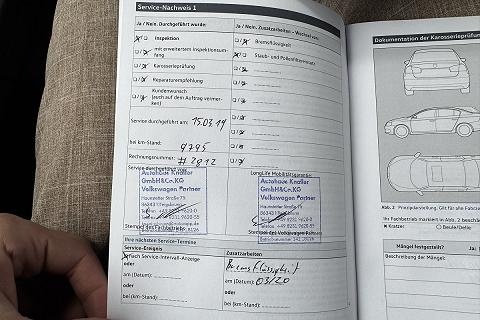 Service-Nachweis 1
Ja / Nein. Durchgeführt wurde:
Inspektion
mit erweitertem Inspektionsum-
fang
Karosserieprüfung
Reparaturempfehlung
Kundenwunsch
(auch auf dem Auftrag vermer-
ken)
Service durchgeführt am: 15.03.19
bei km-Stand: 9795
Rechnungsnummer: # 2812
Service durchgeführt von:
Autohaus Knöller
GmbH&Co.KG
Volkswagen Partner
Haunstetter Straße 75
Stempel des Fachbetriebs
Ja / Nein. Zusatzarbeiten - Wechsel von:
Bremsflüssigkeit
Staub- und Pollenfiltereinsatz
LongLife Mobilitätsgarantie:
Autohaus Knöller
GmbH&Co.KG
Volkswagen Partner
Haunstetter Straße 75
Stempel des Volkswagen Partners
Ihre nächsten Service-Termine
Service-Ereignis
Nach Service-Intervall-Anzeige
oder
am (Datum):
oder
bei (km-Stand):
Zusatzarbeiten
Bremsflüssigkeit
am (Datum): 03/20
oder
bei (km-Stand):
Dokumentation der Karosserieprüfung
Abb. 2 Prinzipdarstellung. Gilt für alle Fahrzeug
Ihr Fachbetrieb markiert in Abb. 2 beschä
Kratzer
Beule/Delle
Mängel festgestellt?
Ja
Beschreibung der Mängel: